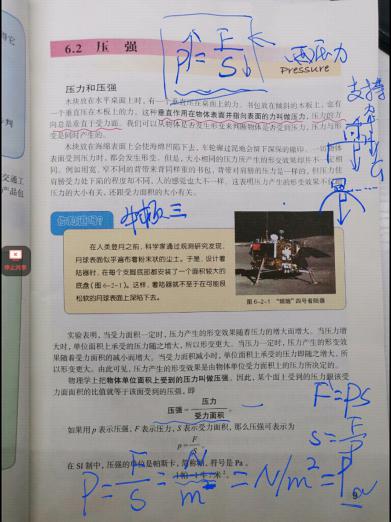 6.2 压 强
P = F/S
压力
Pressure
支撑
压力和压强
木块放在水平桌面上时,有一个垂直压在桌面上的力。书包放在倾斜的木板上,也有
一个垂直压在木板上的力。这种垂直作用在物体表面并指向表面的力叫做压力。压力的方
向总是垂直于受力面。我们可以从物体是否发生形变来判断物体是否受到压力,压力与形
变是同时产生的。
木块放在海绵面上会使海绵凹陷下去,车轮碾过泥地会留下深深的辙印。一切物体
表面受到压力时,都会发生形变。但是,大小相同的压力所产生的形变效果却并不一定相
同。例如用宽、窄不同的背带来背同样重的书包,背带对肩膀的压力是一样的,但压力使
肩膀受力处下陷的程度却不同,人的感觉也大不一样。这表明压力产生的形变效果不仅与
压力的大小有关,还跟受力面积的大小有关。
你知道吗?
在人类登月之前,科学家通过观测研究发现,
月球表面似乎遍布着粉末状的尘土。于是,设计着
陆器时,在每个支脚底部都安装了一个面积较大的
底盘(图6-2-1)。这样,着陆器就不至于在可能很
松软的月球表面上深陷下去。
图6-2-1 “嫦娥”四号着陆器
实验表明,当受力面积一定时,压力产生的形变效果随着压力的增大而增大。当压力增
大时,单位面积上承受的压力随之增大,所以形变更大。当压力一定时,压力产生的形变效
果随着受力面积的减小而增大。当受力面积减小时,单位面积上承受的压力即随之增大,所
以形变更大。由此可见,压力产生的形变效果是由物体单位受力面积上的压力所决定的。
物理学上把物体单位面积上受到的压力叫做压强。因此,某个面上受到的压力跟该受
力面面积的比值就等于该面受到的压强,即
压强= 压力/受力面积 。
如果用 p 表示压强、F 表示压力、S 表示受力面积,那么压强可表示为
p = F/S
F = PS
S = F/P
在 SI 制中,压强的单位是帕斯卡,简称帕,符号是 Pa。
P = F/S = N/m² = N/m² = Pa
停止共享